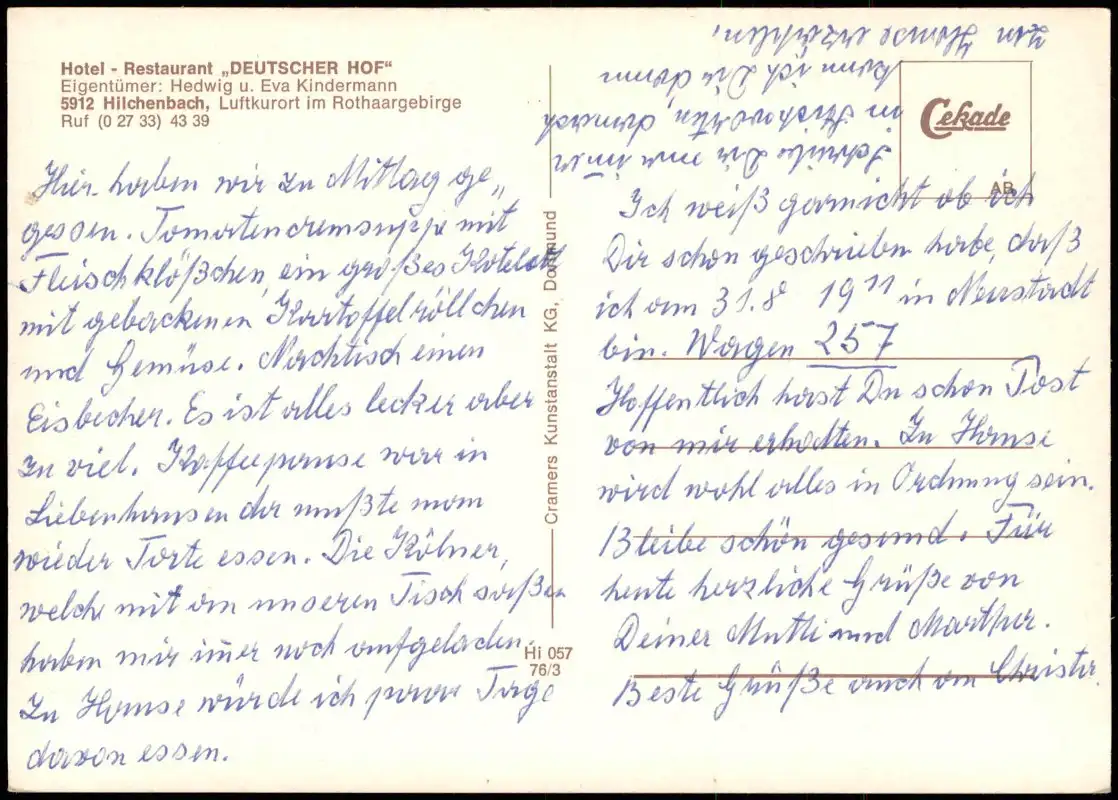 Hotel - Restaurant „DEUTSCHER HOF"
Eigentümer: Hedwig u. Eva Kindermann
5912 Hilchenbach, Luftkurort im Rothaargebirge
Ruf (0 27 33) 43 39
Hier haben wir zu Mittag ge„
gessen. Tomatencremsuppe mit
Fleischklößchen, ein großes Kotelett
mit gebackenen Kartoffelröllchen
und Gemüse. Nachtisch einen
Eisbecher. Es ist alles lecker aber
zu viel. Kaffeepause war in
Liebenhausen da mußte man
wieder Torte essen. Die Kölner,
welche mit an unseren Tisch saßen
haben mir im̅er noch aufgeladen.
Zu Hause würde ich paar Tage
davon essen.
Cramers Kunstanstalt KG, Dortmund
Hi 057
76/3
Cekade
AB
Ich weiß garnicht ob ich
Dir schon geschrieben habe, daß
ich am 31.8 19 11 in Neustadt
bin. Wagen 257
Hoffentlich hast Du schon Post
von mir erhalten. Zu Hause
wird wohl alles in Ordnung sein.
Bleibe schön gesund. Für
heute herzliche Grüße von
Deiner Mutti und Marthar.
Beste Grüße auch an Christa.
Schreibe Dir nur immer
in Stichworten, danach
kann ich Dir dann
zu Hause erzählen.